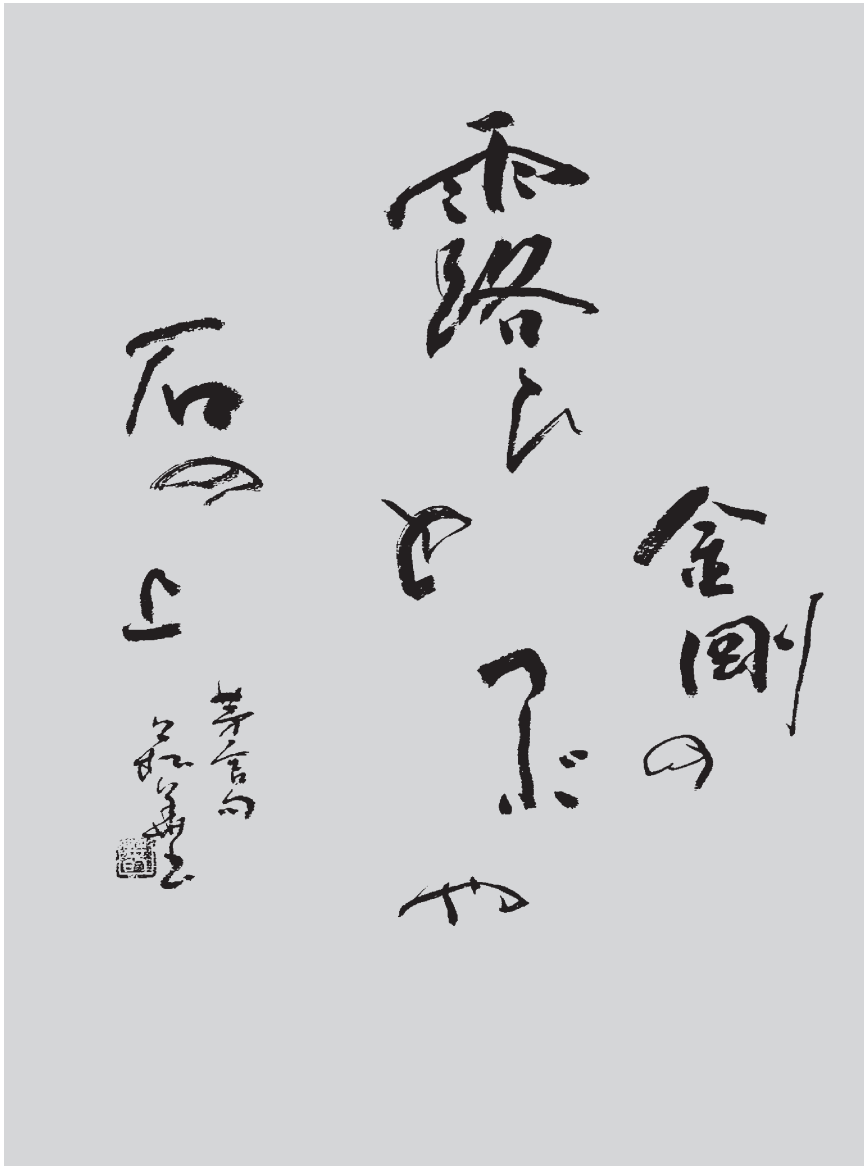 金剛の
露ひ
とつぶや
石の上
茅舎句